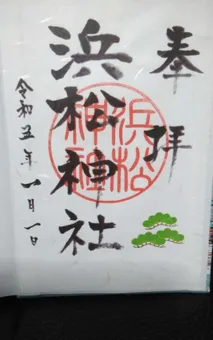 奉拝
浜松神社
浜松
神社
令和五年一月一日